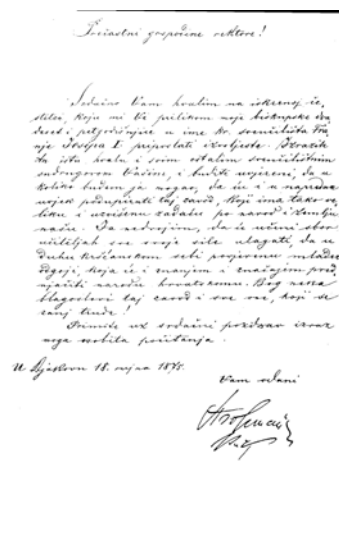 Prečastni gospodine rektore!
Srdačno Vam hvalim na iskrenoj če-
stitci, koju mi Ve prilikom moje biskupske dva-
deset i petgodišnjice u ime kr. sveučilišta Fra-
nje Josipa I. pripo­slati izvoljeste. Izrazite
tu istu hvalu i svim ostalim sveučilištnim
sudrugovom Vašim, i budite uvjereni, da u
koliko budem ja mogao, da ću i u napredak
uvjek podupirati taj zavod, koji ima tako ve-
liku i uzvišenu zadaću po narod i zemlju
našu. Ja nedvojim, da će učeni sbor
učiteljah sve svoje sile ulagati, da u
duhu krščanskom sebi povjerenu mladež
odgoji, koja će i znanjem i značajem pred-
njačiti narodu hrvatskomu. Bog neka
blagoslovi taj zavod i sve one, koji se
zanj trude!
Primite uz srdačni pozdrav izraz
moga osobita počitanja.
U Djakovu 18. rujna 1875.
Vam odani